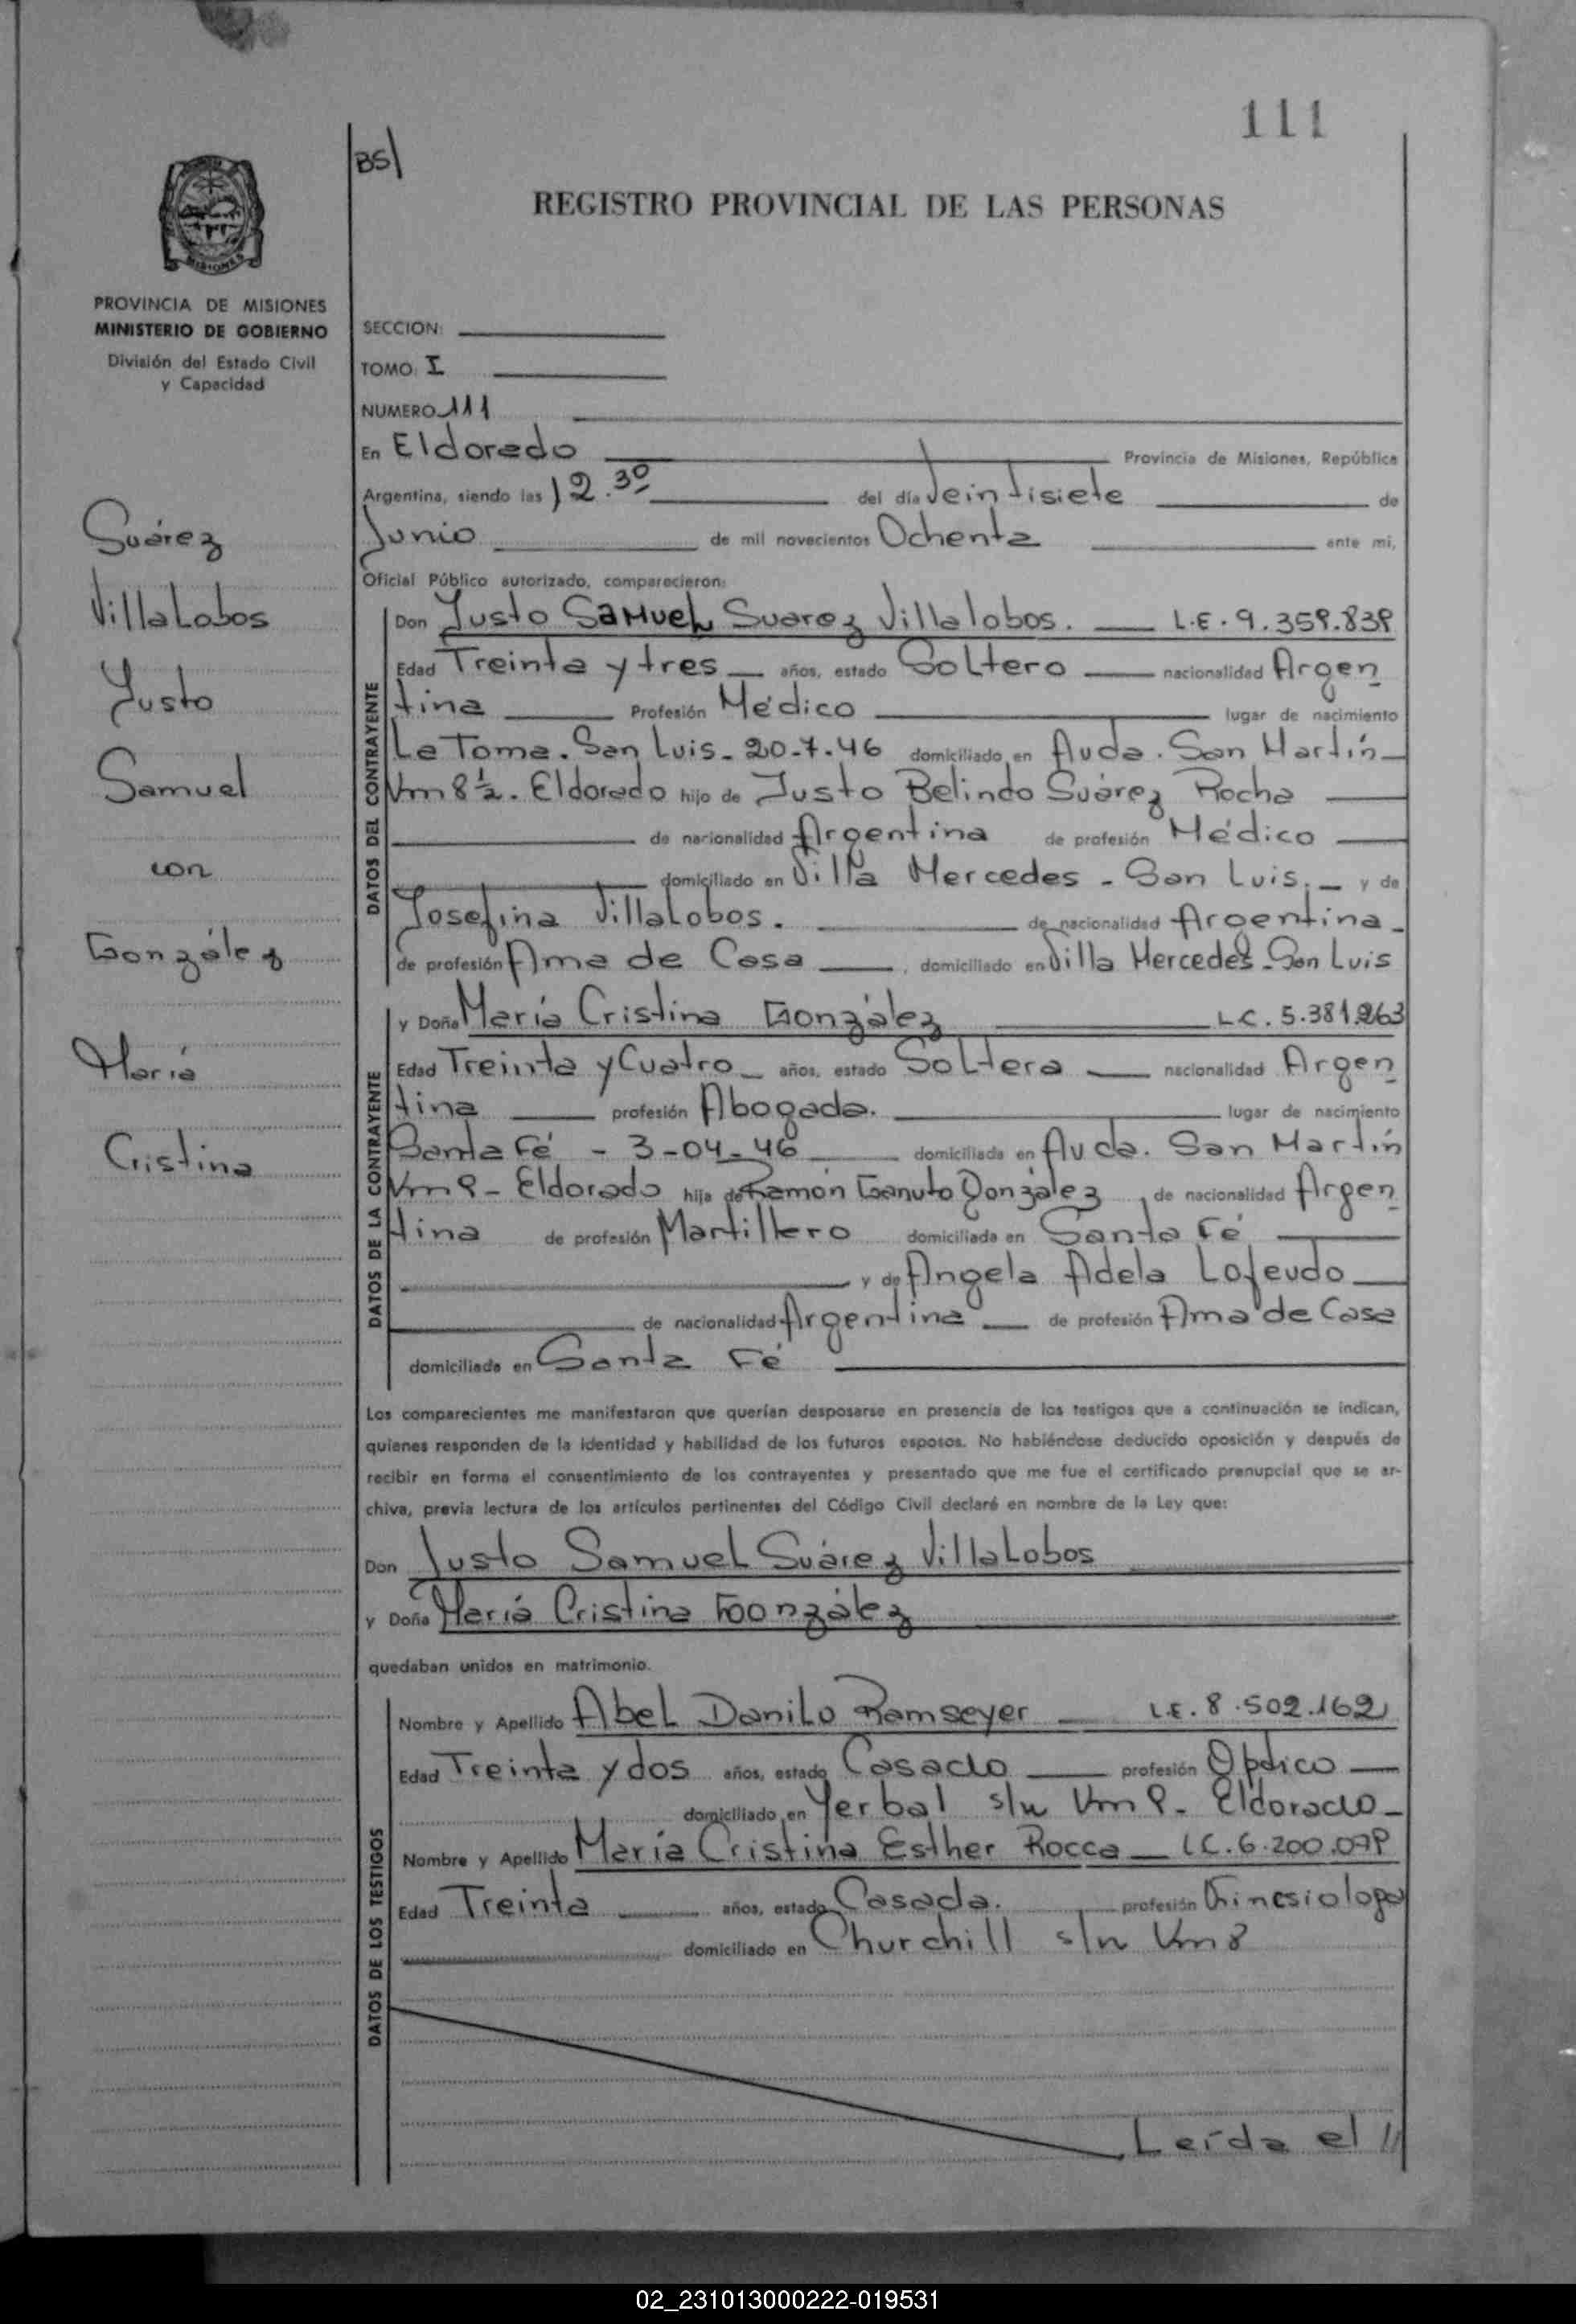 111
BS
REGISTRO PROVINCIAL DE LAS PERSONAS
MISIONES
PROVINCIA DE MISIONES
MINISTERIO DE GOBIERNO
División del Estado Civil
y Capacidad
Suárez
Villalobos
Justo
Samuel
con
González
María
Cristina
SECCION:
TOMO: I
NUMERO 111
En Eldorado Provincia de Misiones, República
Argentina, siendo las 12.30 del día Veintisiete de
Junio de mil novecientos Ochenta ante mi,
Oficial Público autorizado, comparecieron:
DATOS DEL CONTRAYENTE
Don Justo Samuel Suarez Villalobos. L.E. 9.359.839
Edad Treinta y tres años, estado Soltero nacionalidad Argen
tina Profesión Médico lugar de nacimiento
La Toma. San Luis - 20-7-46 domiciliado en Avda. San Martín
Km 8 ½. Eldorado hijo de Justo Belindo Suárez Rocha
de nacionalidad Argentina de profesión Médico
domiciliado en Villa Mercedes - San Luis. y de
Josefina Villalobos. de nacionalidad Argentina
de profesión Ama de Casa, domiciliado en Villa Mercedes - San Luis
DATOS DE LA CONTRAYENTE
y Doña María Cristina González L.C. 5.381.263
Edad Treinta y Cuatro años, estado Soltera nacionalidad Argen
tina profesión Abogada. lugar de nacimiento
Santa Fé - 3-04-46 domiciliada en Avda. San Martín
Km 9 - Eldorado hija de Ramón Ganuto González, de nacionalidad Argen
tina de profesión Martillero domiciliada en Santa Fé
y de Angela Adela Lofeudo
de nacionalidad Argentina de profesión Ama de Casa
domiciliada en Santa Fé
Los comparecientes me manifestaron que querían desposarse en presencia de los testigos que a continuación se indican,
quienes responden de la identidad y habilidad de los futuros esposos. No habiéndose deducido oposición y después de
recibir en forma el consentimiento de los contrayentes y presentado que me fue el certificado prenupcial que se ar-
chiva, previa lectura de los artículos pertinentes del Código Civil declaré en nombre de la Ley que:
Don Justo Samuel Suárez Villalobos
y Doña María Cristina González
quedaban unidos en matrimonio.
DATOS DE LOS TESTIGOS
Nombre y Apellido Abel Danilo Ramseyer L.E. 8.502.162
Edad Treinta y dos años, estado Casado profesión Optico
domiciliado en Yerbal s/n Km 9 - Eldorado
Nombre y Apellido María Cristina Esther Rocca L.C. 6.200.079
Edad Treinta años, estado Casada. profesión Kinesiologa
domiciliado en Churchill s/n Km 8
Leída el //
02_231013000222-019531